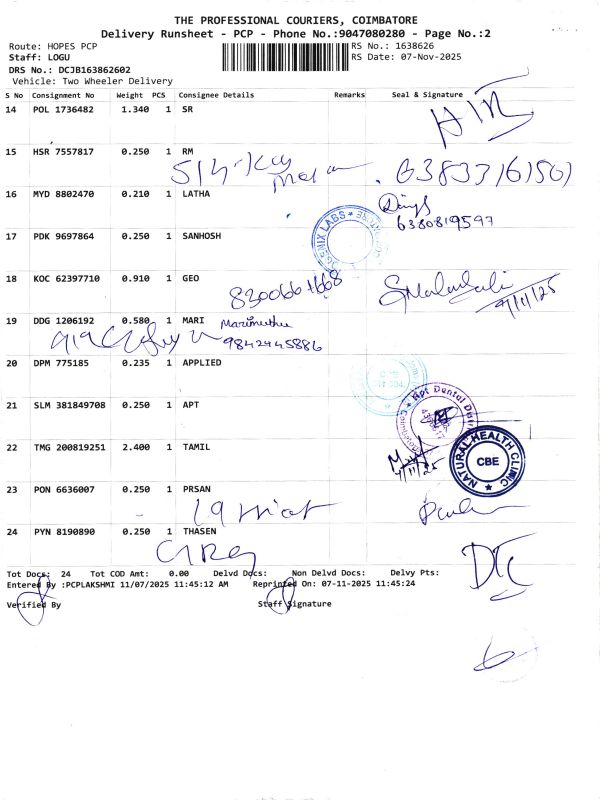 THE PROFESSIONAL COURIERS, COIMBATORE
Delivery Runsheet - PCP - Phone No.:9047080280 - Page No.:2
Route: HOPES PCP
RS No.: 1638626
Staff: LOGU
RS Date: 07-Nov-2025
DRS No.: DCJB163862602
Vehicle: Two Wheeler Delivery
S No Consignment No Weight PCS Consignee Details Remarks Seal & Signature
14 POL 1736482 1.340 1 SR
15 HSR 7557817 0.250 1 RM
16 MYD 8802470 0.210 1 LATHA
6380819597
17 PDK 9697864 0.250 1 SANHOSH
18 KOC 62397710 0.910 1 GEO
19 DDG 1206192 0.580 1 MARI
Marimuthu
9842445886
20 DPM 775185 0.235 1 APPLIED
21 SLM 381849708 0.250 1 APT
22 TMG 200819251 2.400 1 TAMIL
NATURAL HEALTH CLINIC
CBE
7/11/25
23 PON 6636007 0.250 1 PRSAN
24 PYN 8190890 0.250 1 THASEN
Tot Docs: 24 Tot COD Amt: 0.00 Delvd Docs: Non Delvd Docs: Delvy Pts:
Entered By :PCPLAKSHMI 11/07/2025 11:45:12 AM Reprinted On: 07-11-2025 11:45:24
Verified By Staff Signature